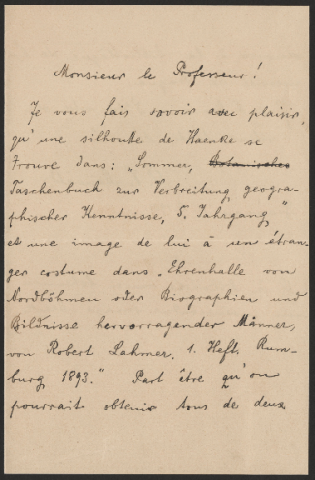 Monsieur le Professeur!
Je vous fais savoir avec plaisir,
qu'une silhoutte de Haenke se
trouve dans: „Sommer, Botanisches
Taschenbuch zur Verbreitung geogra-
phischer Kenntnisse, 5. Jahrgang"
et une image de lui à un étran-
ger costume dans „Ehrenhalle von
Nordböhmen oder Biographien und
Bildnisse hervorragender Männer,
von Robert Lahmer, 1. Heft, Rum-
burg, 1893." Peut être qu'on
pourrait obtenir tous de deux